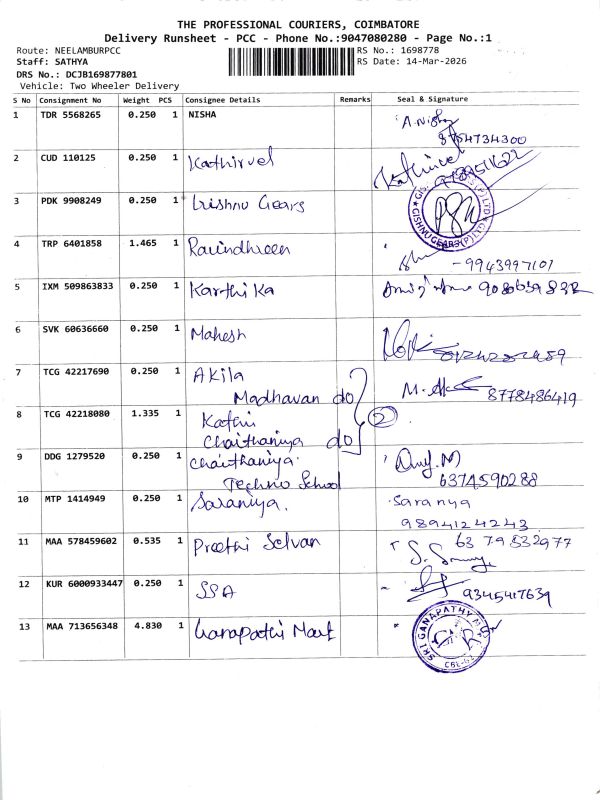 THE PROFESSIONAL COURIERS, COIMBATORE
Delivery Runsheet - PCC - Phone No.:9047080280 - Page No.:1
Route: NEELAMBURPCC
RS No.: 1698778
Staff: SATHYA
RS Date: 14-Mar-2026
DRS No.: DCJB169877801
Vehicle: Two Wheeler Delivery
S No Consignment No Weight PCS Consignee Details Remarks Seal & Signature
1 TDR 5568265 0.250 1 NISHA A. Nisha
2 CUD 110125 0.250 1 Kathirvel Kathirvel
3 PDK 9908249 0.250 1 Gears
GISHNU GEARS (P) LTD
4 TRP 6401858 1.465 1
9943997101
5 IXM 509863833 0.250 1 Karthika
6 SVK 60636660 0.250 1 Mahesh
7 TCG 42217690 0.250 1 Akila
Madhavan do
8778486419
8 TCG 42218080 1.335 1 Kathi
Chaithaniya do
2
9 DDG 1279520 0.250 1 Chaithaniya
Techno School
6374590288
10 MTP 1414949 0.250 1 Saraniya. Saranya
9894124243
11 MAA 578459602 0.535 1 Preethi Selvan 6379532977
12 KUR 6000933447 0.250 1 SSA 9345417639
13 MAA 713656348 4.830 1 Ganapathi Mart
SRI GANAPATHY
CBE-62